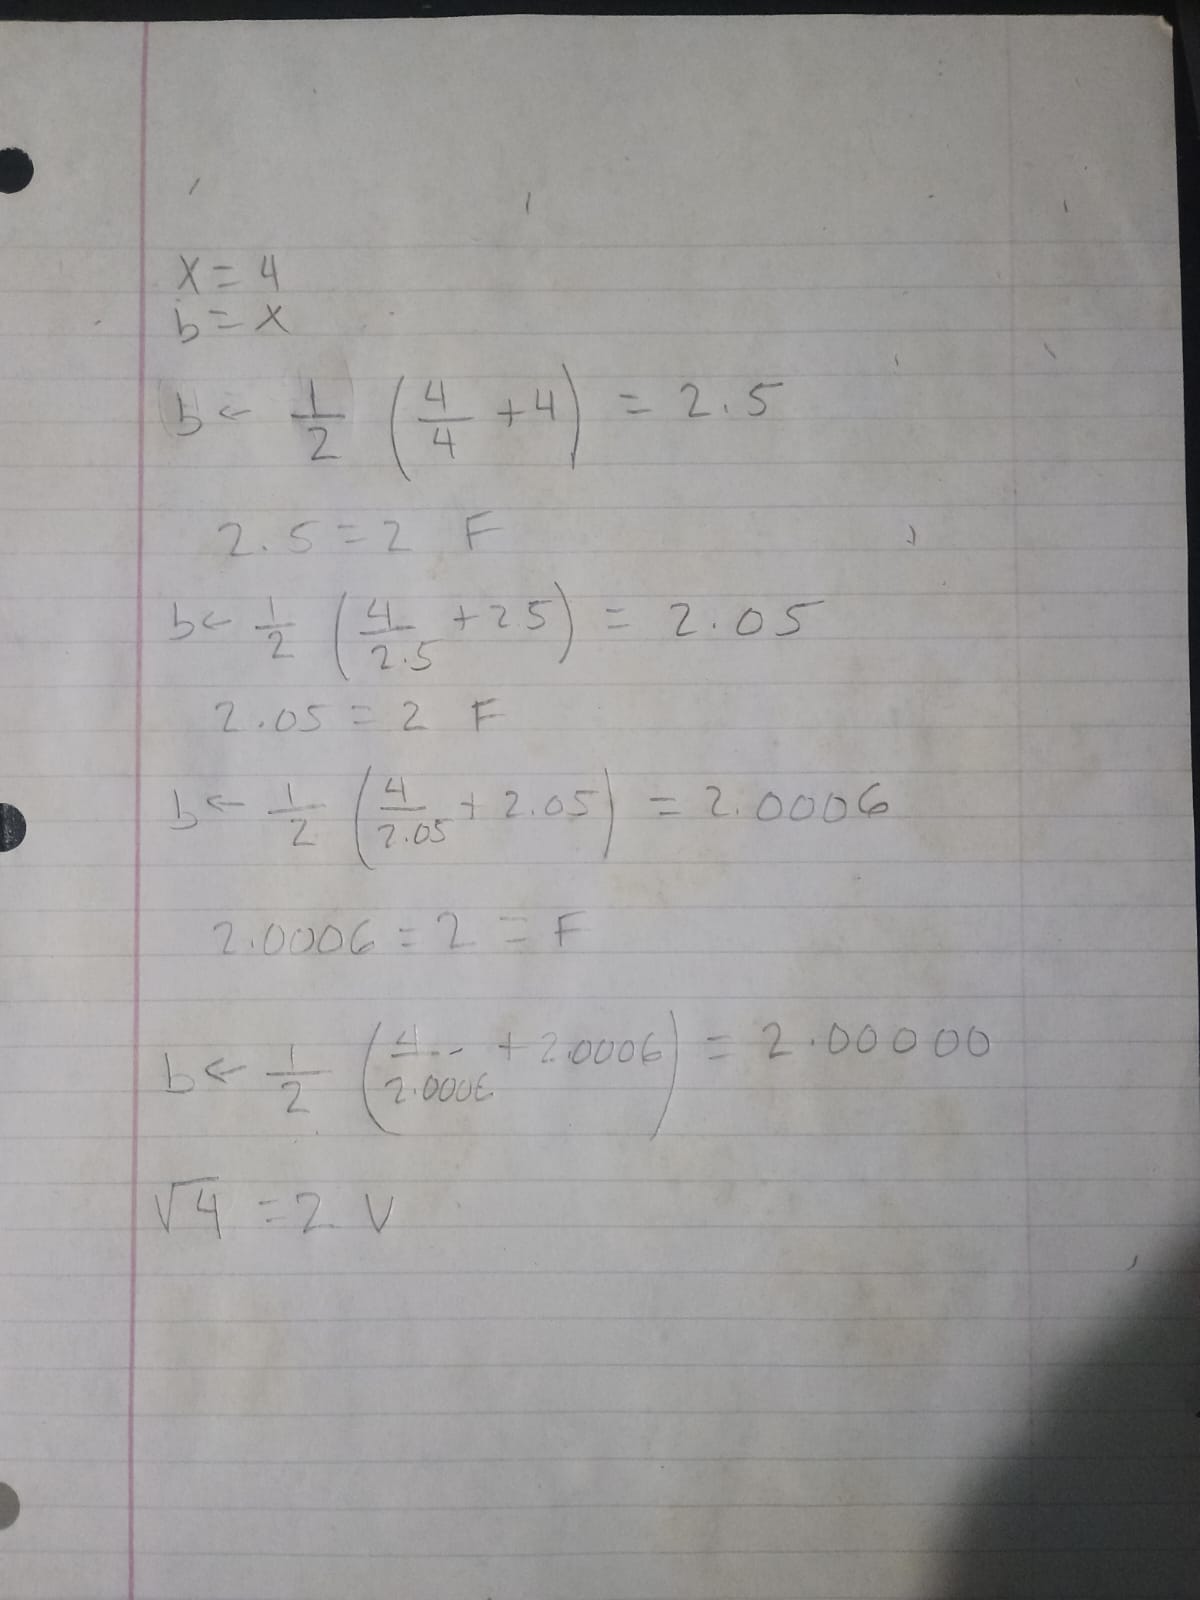 x = 4
b = x
b ← 1/2 (4/4 + 4) = 2.5
2.5 = 2 F
b ← 1/2 (4/2.5 + 2.5) = 2.05
2.05 = 2 F
b ← 1/2 (4/2.05 + 2.05) = 2.0006
2.0006 = 2 = F
b ← 1/2 (4/2.0006 + 2.0006) = 2.00000
√4 = 2 V